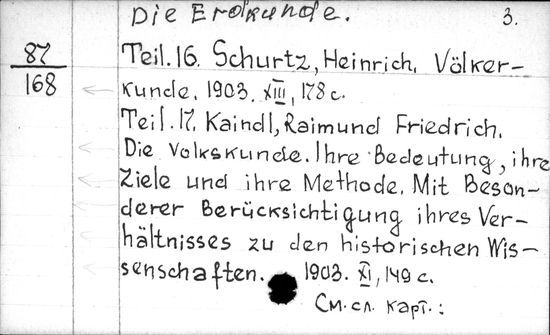 Die Erdkunde. 3.
87
168
Teil. 16. Schurtz, Heinrich. Völker-
kunde. 1903. XIII, 178 с.
Teil. 17. Kaindl, Raimund Friedrich.
Die Volkskunde. Ihre Bedeutung, ihre
Ziele und ihre Methode. Mit Beson-
derer Berücksichtigung ihres Ver-
hältnisses zu den historischen Wis-
senschaften. 1903. XI, 149 с.
См. сл. карт.: